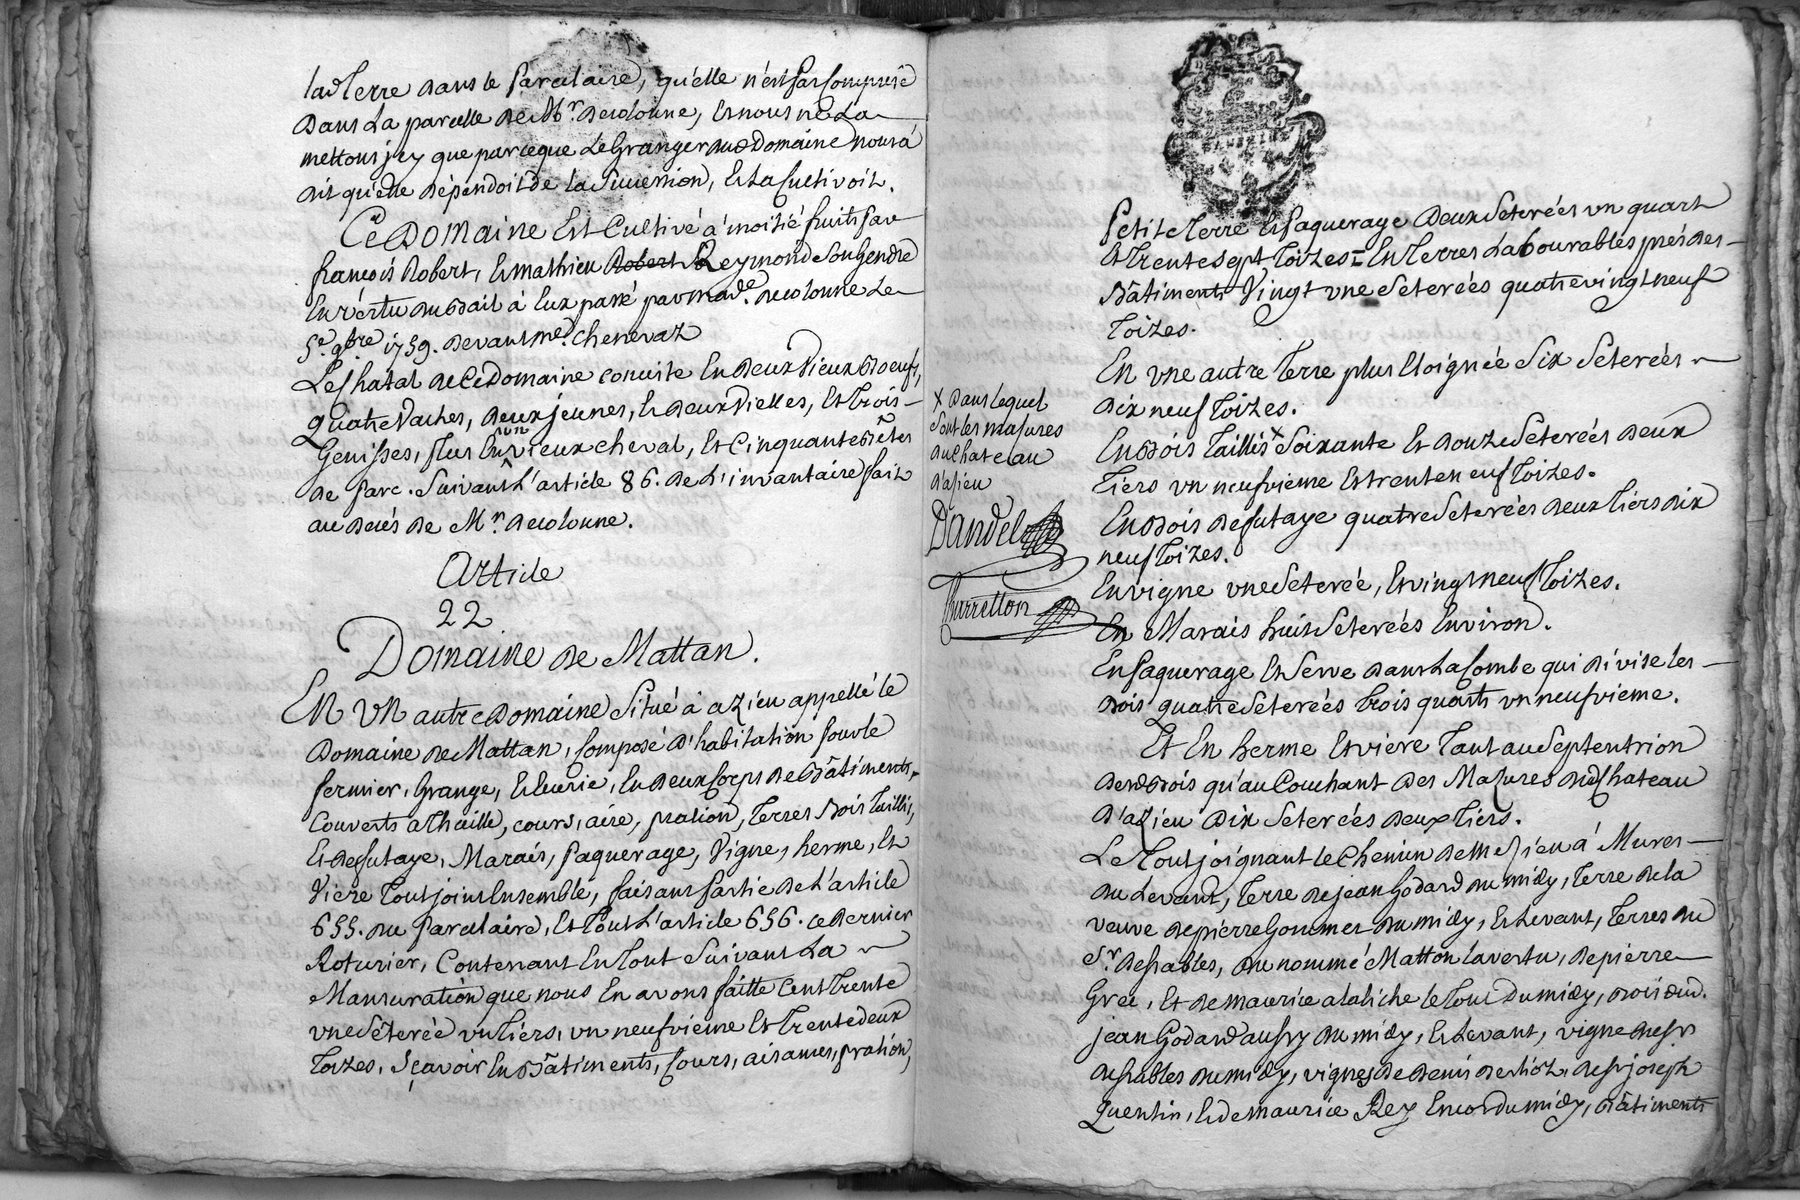 lad. Terre dans le parcelaire, qu'elle n'est pas Comprise
dans La parcelle de Mr. decolonne, Et nous ne La
mettons jcy que parceque Le Granger dud. Domaine nous a
dit qu'elle dépendoit de la Succession, Et La Cultivoit.
Ce Domaine Est Cultivé à moitié fruits par
françois Robert, Et mathieu Robert Reymond Son Gendre
En vértu du Bail à Eux passé par made. decolonne Le
5e. 9bre 1759. devant me. Chenevaz
Le Chatal de Ce Domaine consiste En deux Vieux Boeufs,
quatre Vaches, deux jeunes, Et deux Vielles, Et trois
Genisses, plus Un vieux cheval, Et Cinquante Bêtes
de parc. Suivant L'article 86. de L'invantaire fait
au decés de Mr. decolonne.
Article
22
Domaine de Mattan.
En Un autre Domaine Situé à azieu appellé le
Domaine de Mattan, Composé d'habitation pour le
fermier, Grange, Ecurie, En deux Corps de Bâtiments
Couverts a Thuille, cours, aire, pration, Terres Bois Taillis,
Et de futaye, Marais, paquerage, Vigne, herme, Et
Viere Tout joint Ensemble, faisant partie de L'article
655. du parcelaire, Et Tout L'article 656. ce dernier
Roturier, Contenant En Tout Suivant La
Mansuration que nous En avons faitte Cent Trente
vne Séterée vn Tiers, vn neufvieme Et Trente deux
Toizes, Sçavoir En Bâtiments, Cours, aisances, pration,
Petite Terre Et Paquerage deux Seterées vn quart
Et Trente Sept Toizes = En Terres Labourables prés des
Bâtiments Vingt vne Seterées quatre vingt neuf
Toizes.
En vne autre Terre plus Eloignée Six Seterées
dix neuf Toizes.
En Bois Taillis x Soixante Et douze Seterées deux
Tiers vn neufvieme Et trente neuf Toizes.
En Bois de futaye quatre Seterées deux Tiers dix
neuf Toizes.
En vigne vne Seterée, Et vingt neuf Toizes.
En Marais huit Seterées Environ.
En Paquerage Et Serve dans La Combe qui divise les
Bois quatre Seterées trois quarts vn neufvieme.
Et En herme Et viere Tant au Septentrion
desd. Bois qu'au Couchant des Mazures dud. Chateau
d'azieu dix Seterées deux Tiers.
Le Tout joignant le Chemin de à Mures
du Levant, Terre de jean Godard du midy, Terre de la
veuve de pierre Gommer du midy, Et Levant, Terres du
Sr. desrables, du nommé Matton lavertu, de pierre
Gree, Et de maurice le Tout Du midy, Bois dud.
jean Godard aussy du midy, Et Levant, vigne du Sr.
desrables du midy, vignes de denis Berlioz, de Sr. joseph
Quentin, Et de maurice Rey Encor du midy, Bâtiments
x dans lequel
Sont les masures
du Chateau
d'asieu
Dandel
Thurretton